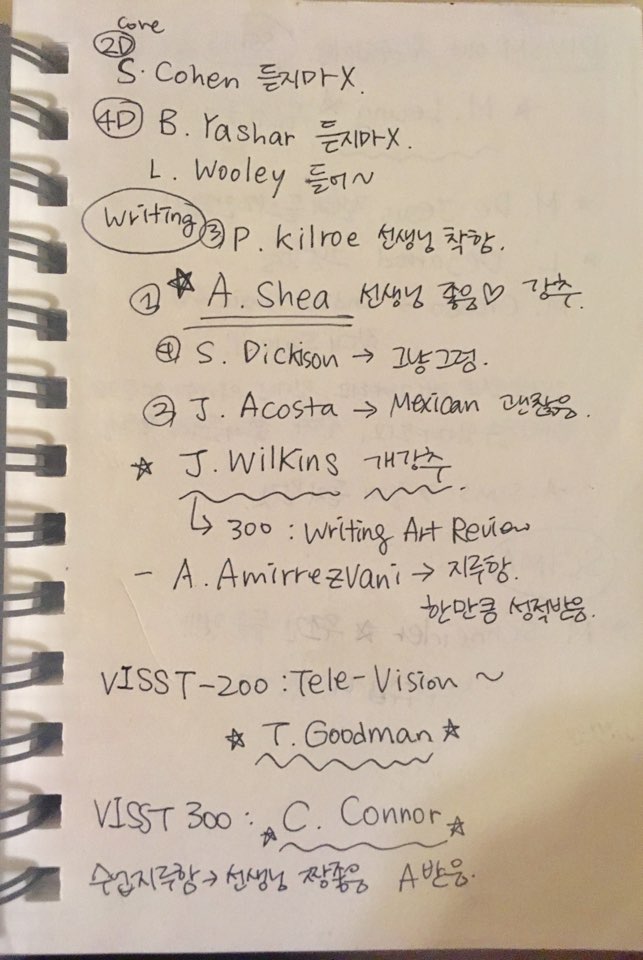 core
2D
S. Cohen 듣지마X.
4D B. Yashar 듣지마X.
L. Wooley 들어~
Writing ③ P. Kilroe 선생님 착함.
① ★ A. Shea 선생님 좋음♡ 강추.
④ S. Dickison → 그냥그렁.
② J. Acosta → Mexican 괜찮음.
☆ J. Wilkins 개강추.
↳ 300 : Writing Art Review
- A. Amirrezvani → 지루함.
한만큼 성적받음.
VISST-200 : Tele-Vision ~
☆ T. Goodman ☆
VISST 300 : ☆ C. Connor ☆
수업지루함→선생님 짱좋음 A받음.